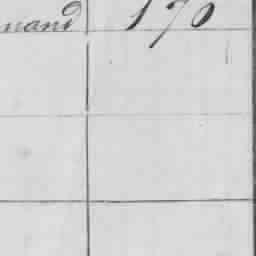 nand 170